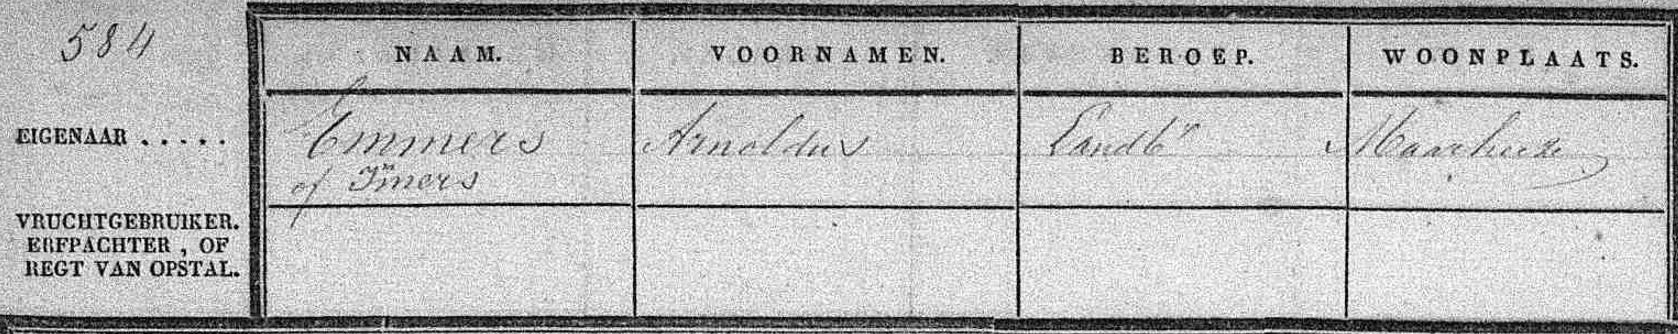 584
NAAM. VOORNAMEN. BEROEP. WOONPLAATS.
EIGENAAR ..... Emmers Arnoldus Landbr Maarheeze
of Immers
VRUCHTGEBRUIKER.
ERFPACHTER, OF
REGT VAN OPSTAL.